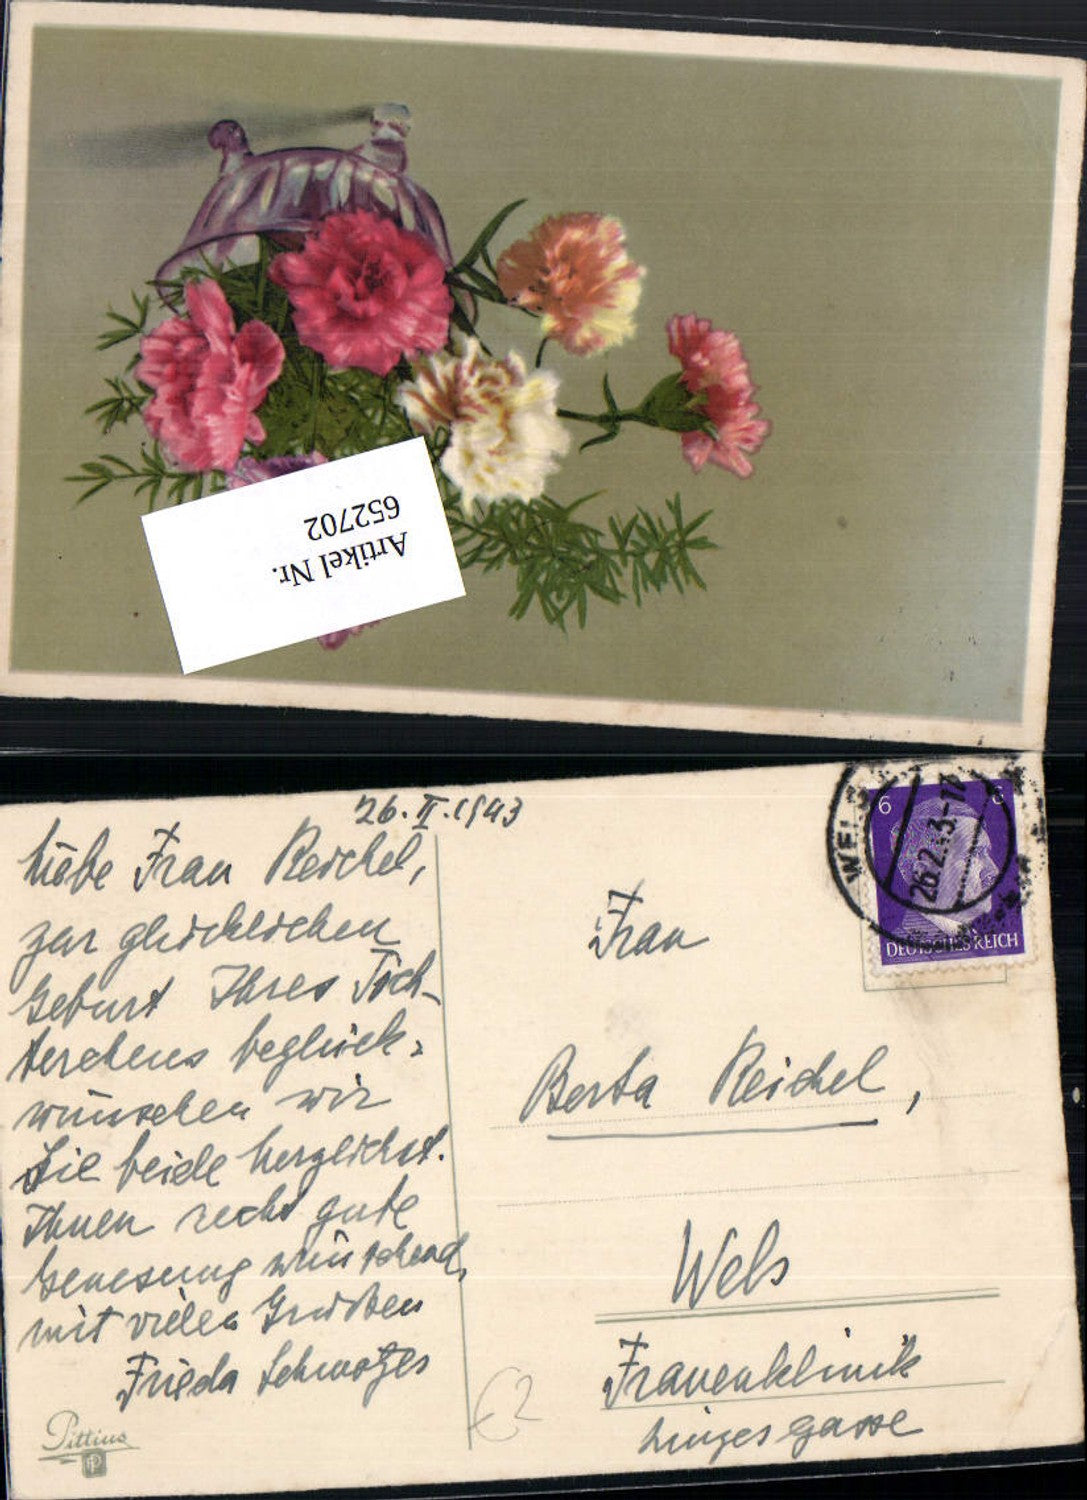 Artikel Nr.
652702
26.II.1943
Liebe Frau Reichel,
zur glücklichen
Geburt Ihres Töch-
terchens beglück-
wünschen wir
Sie beide herzlichst.
Ihnen recht gute
Genesung wünschend,
mit vielen Grüßen
Frieda
Pittius
Frau
Berta Reichel,
Wels
Frauenklinik
gasse
WELS
26.2.43-17
6 6
DEUTSCHES REICH
€2